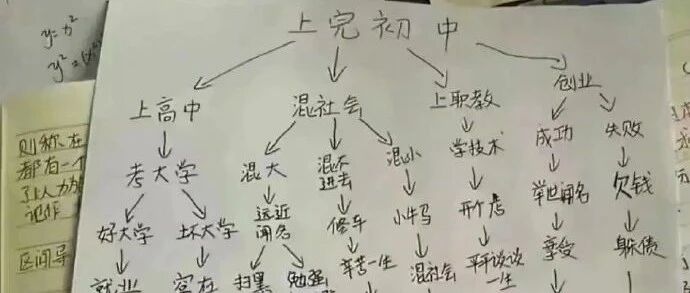 y=x²
y²=
上完初中
上高中 混社会 上职教 创业
考大学 混大 混不进去 混小 学技术 成功 失败
好大学 坏大学 远近闻名 修车 小牛马 开个店 举世闻名 欠钱
就业 辛苦一生 混社会 平平淡淡一生 享受 躲债
扫黑 勉强
则称在
都有一个
区间